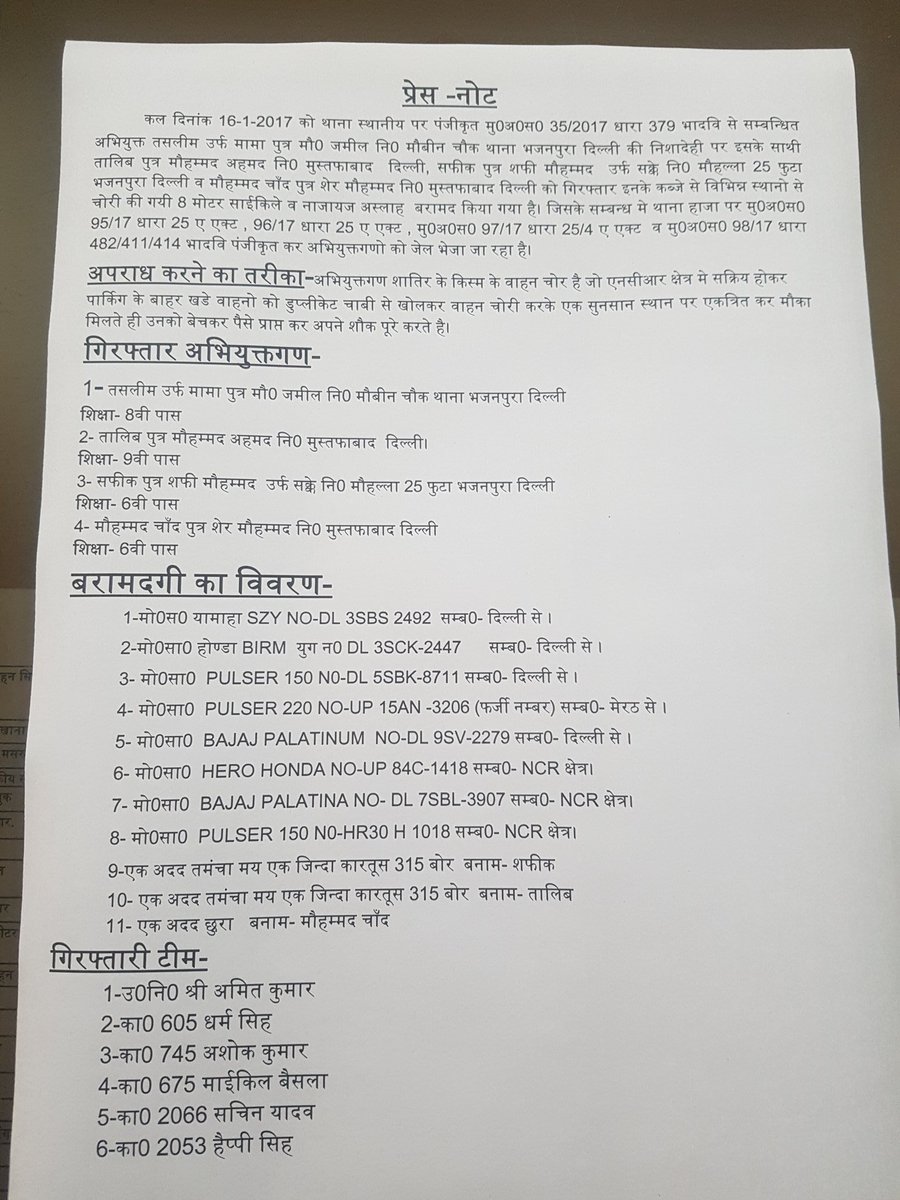 प्रेस -नोट
कल दिनांक 16-1-2017 को थाना स्थानीय पर पंजीकृत मु0अ0स0 35/2017 धारा 379 भादवि से सम्बन्धित
अभियुक्त तसलीम उर्फ मामा पुत्र मौ0 जमील नि0 मौबीन चौक थाना भजनपुरा दिल्ली की निशादेही पर इसके साथी
तालिब पुत्र मौहम्मद अहमद नि0 मुस्तफाबाद दिल्ली, सफीक पुत्र शफी मौहम्मद उर्फ सक्के नि0 मौहल्ला 25 फुटा
भजनपुरा दिल्ली व मौहम्मद चाँद पुत्र शेर मौहम्मद नि0 मुस्तफाबाद दिल्ली को गिरफ्तार इनके कब्जे से विभिन्न स्थानो से
चोरी की गयी 8 मोटर साईकिले व नाजायज अस्लाह बरामद किया गया है। जिसके सम्बन्ध मे थाना हाजा पर मु0अ0स0
95/17 धारा 25 ए एक्ट , 96/17 धारा 25 ए एक्ट , मु0अ0स0 97/17 धारा 25/4 ए एक्ट व मु0अ0स0 98/17 धारा
482/411/414 भादवि पंजीकृत कर अभियुक्तगणो को जेल भेजा जा रहा है।
अपराध करने का तरीका-अभियुक्तगण शातिर के किस्म के वाहन चोर है जो एनसीआर क्षेत्र मे सक्रिय होकर
पार्किग के बाहर खडे वाहनो को डुप्लीकेट चाबी से खोलकर वाहन चोरी करके एक सुनसान स्थान पर एकत्रित कर मौका
मिलते ही उनको बेचकर पैसे प्राप्त कर अपने शौक पूरे करते है।
गिरफ्तार अभियुक्तगण-
1- तसलीम उर्फ मामा पुत्र मौ0 जमील नि0 मौबीन चौक थाना भजनपुरा दिल्ली
शिक्षा- 8वी पास
2- तालिब पुत्र मौहम्मद अहमद नि0 मुस्तफाबाद दिल्ली।
शिक्षा- 9वी पास
3- सफीक पुत्र शफी मौहम्मद उर्फ सक्के नि0 मौहल्ला 25 फुटा भजनपुरा दिल्ली
शिक्षा- 6वी पास
4- मौहम्मद चाँद पुत्र शेर मौहम्मद नि0 मुस्तफाबाद दिल्ली
शिक्षा- 6वी पास
बरामदगी का विवरण-
1-मो0स0 यामाहा SZY NO-DL 3SBS 2492 सम्ब0- दिल्ली से ।
2-मो0सा0 होण्डा BIRM युग न0 DL 3SCK-2447 सम्ब0- दिल्ली से ।
3- मो0सा0 PULSER 150 N0-DL 5SBK-8711 सम्ब0- दिल्ली से ।
4- मो0सा0 PULSER 220 NO-UP 15AN -3206 (फर्जी नम्बर) सम्ब0- मेरठ से ।
5- मो0सा0 BAJAJ PALATINUM NO-DL 9SV-2279 सम्ब0- दिल्ली से ।
6- मो0सा0 HERO HONDA NO-UP 84C-1418 सम्ब0- NCR क्षेत्र।
7- मो0सा0 BAJAJ PALATINA NO- DL 7SBL-3907 सम्ब0- NCR क्षेत्र।
8- मो0सा0 PULSER 150 N0-HR30 H 1018 सम्ब0- NCR क्षेत्र।
9-एक अदद तमंचा मय एक जिन्दा कारतूस 315 बोर बनाम- शफीक
10- एक अदद तमंचा मय एक जिन्दा कारतूस 315 बोर बनाम- तालिब
11- एक अदद छुरा बनाम- मौहम्मद चाँद
गिरफ्तारी टीम-
1-उ0नि0 श्री अमित कुमार
2-का0 605 धर्म सिह
3-का0 745 अशोक कुमार
4-का0 675 माईकिल बैसला
5-का0 2066 सचिन यादव
6-का0 2053 हैप्पी सिह